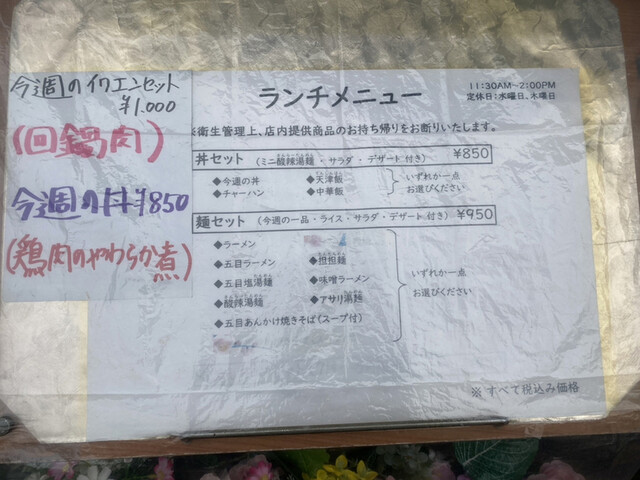 今週のイクエンセット
¥1.000
(回鍋肉)
今週の丼¥850
(鶏肉のやわらか煮)
ランチメニュー
11:30AM〜2:00PM
定休日:水曜日、木曜日
※衛生管理上、店内提供商品のお持ち帰りをお断りいたします。
丼セット (ミニ酸辣湯麺・サラダ・デザート付き) ¥850
◆今週の丼 ◆天津飯
◆チャーハン ◆中華飯
いずれか一点
お選びください
麺セット (今週の一品・ライス・サラダ・デザート付き) ¥950
◆ラーメン
◆五目ラーメン ◆担担麺
◆五目塩湯麺 ◆味噌ラーメン
◆酸辣湯麺 ◆アサリ湯麺
◆五目あんかけ焼きそば(スープ付)
いずれか一点
お選びください
※ すべて税込み価格